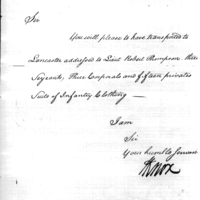 Sir
You will please to have transported to
Lancaster addressed to Lieut Robert Thompson. three
Serjeants, Three Corporals and fifteen privates
Suits of Infantry Clothing —
I am
Sir
Your humble Servant
HKnox